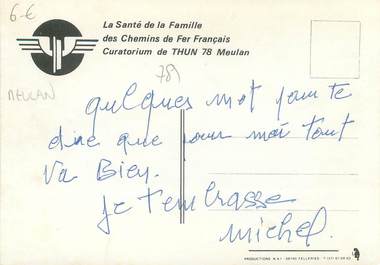 6-€
La Santé de la Famille
des Chemins de Fer Français
Curatorium de THUN 78 Meulan
789
MEULAN
quelques mot pour te
dire que pour moi tout
va Bien.
je t'embrasse
michel.